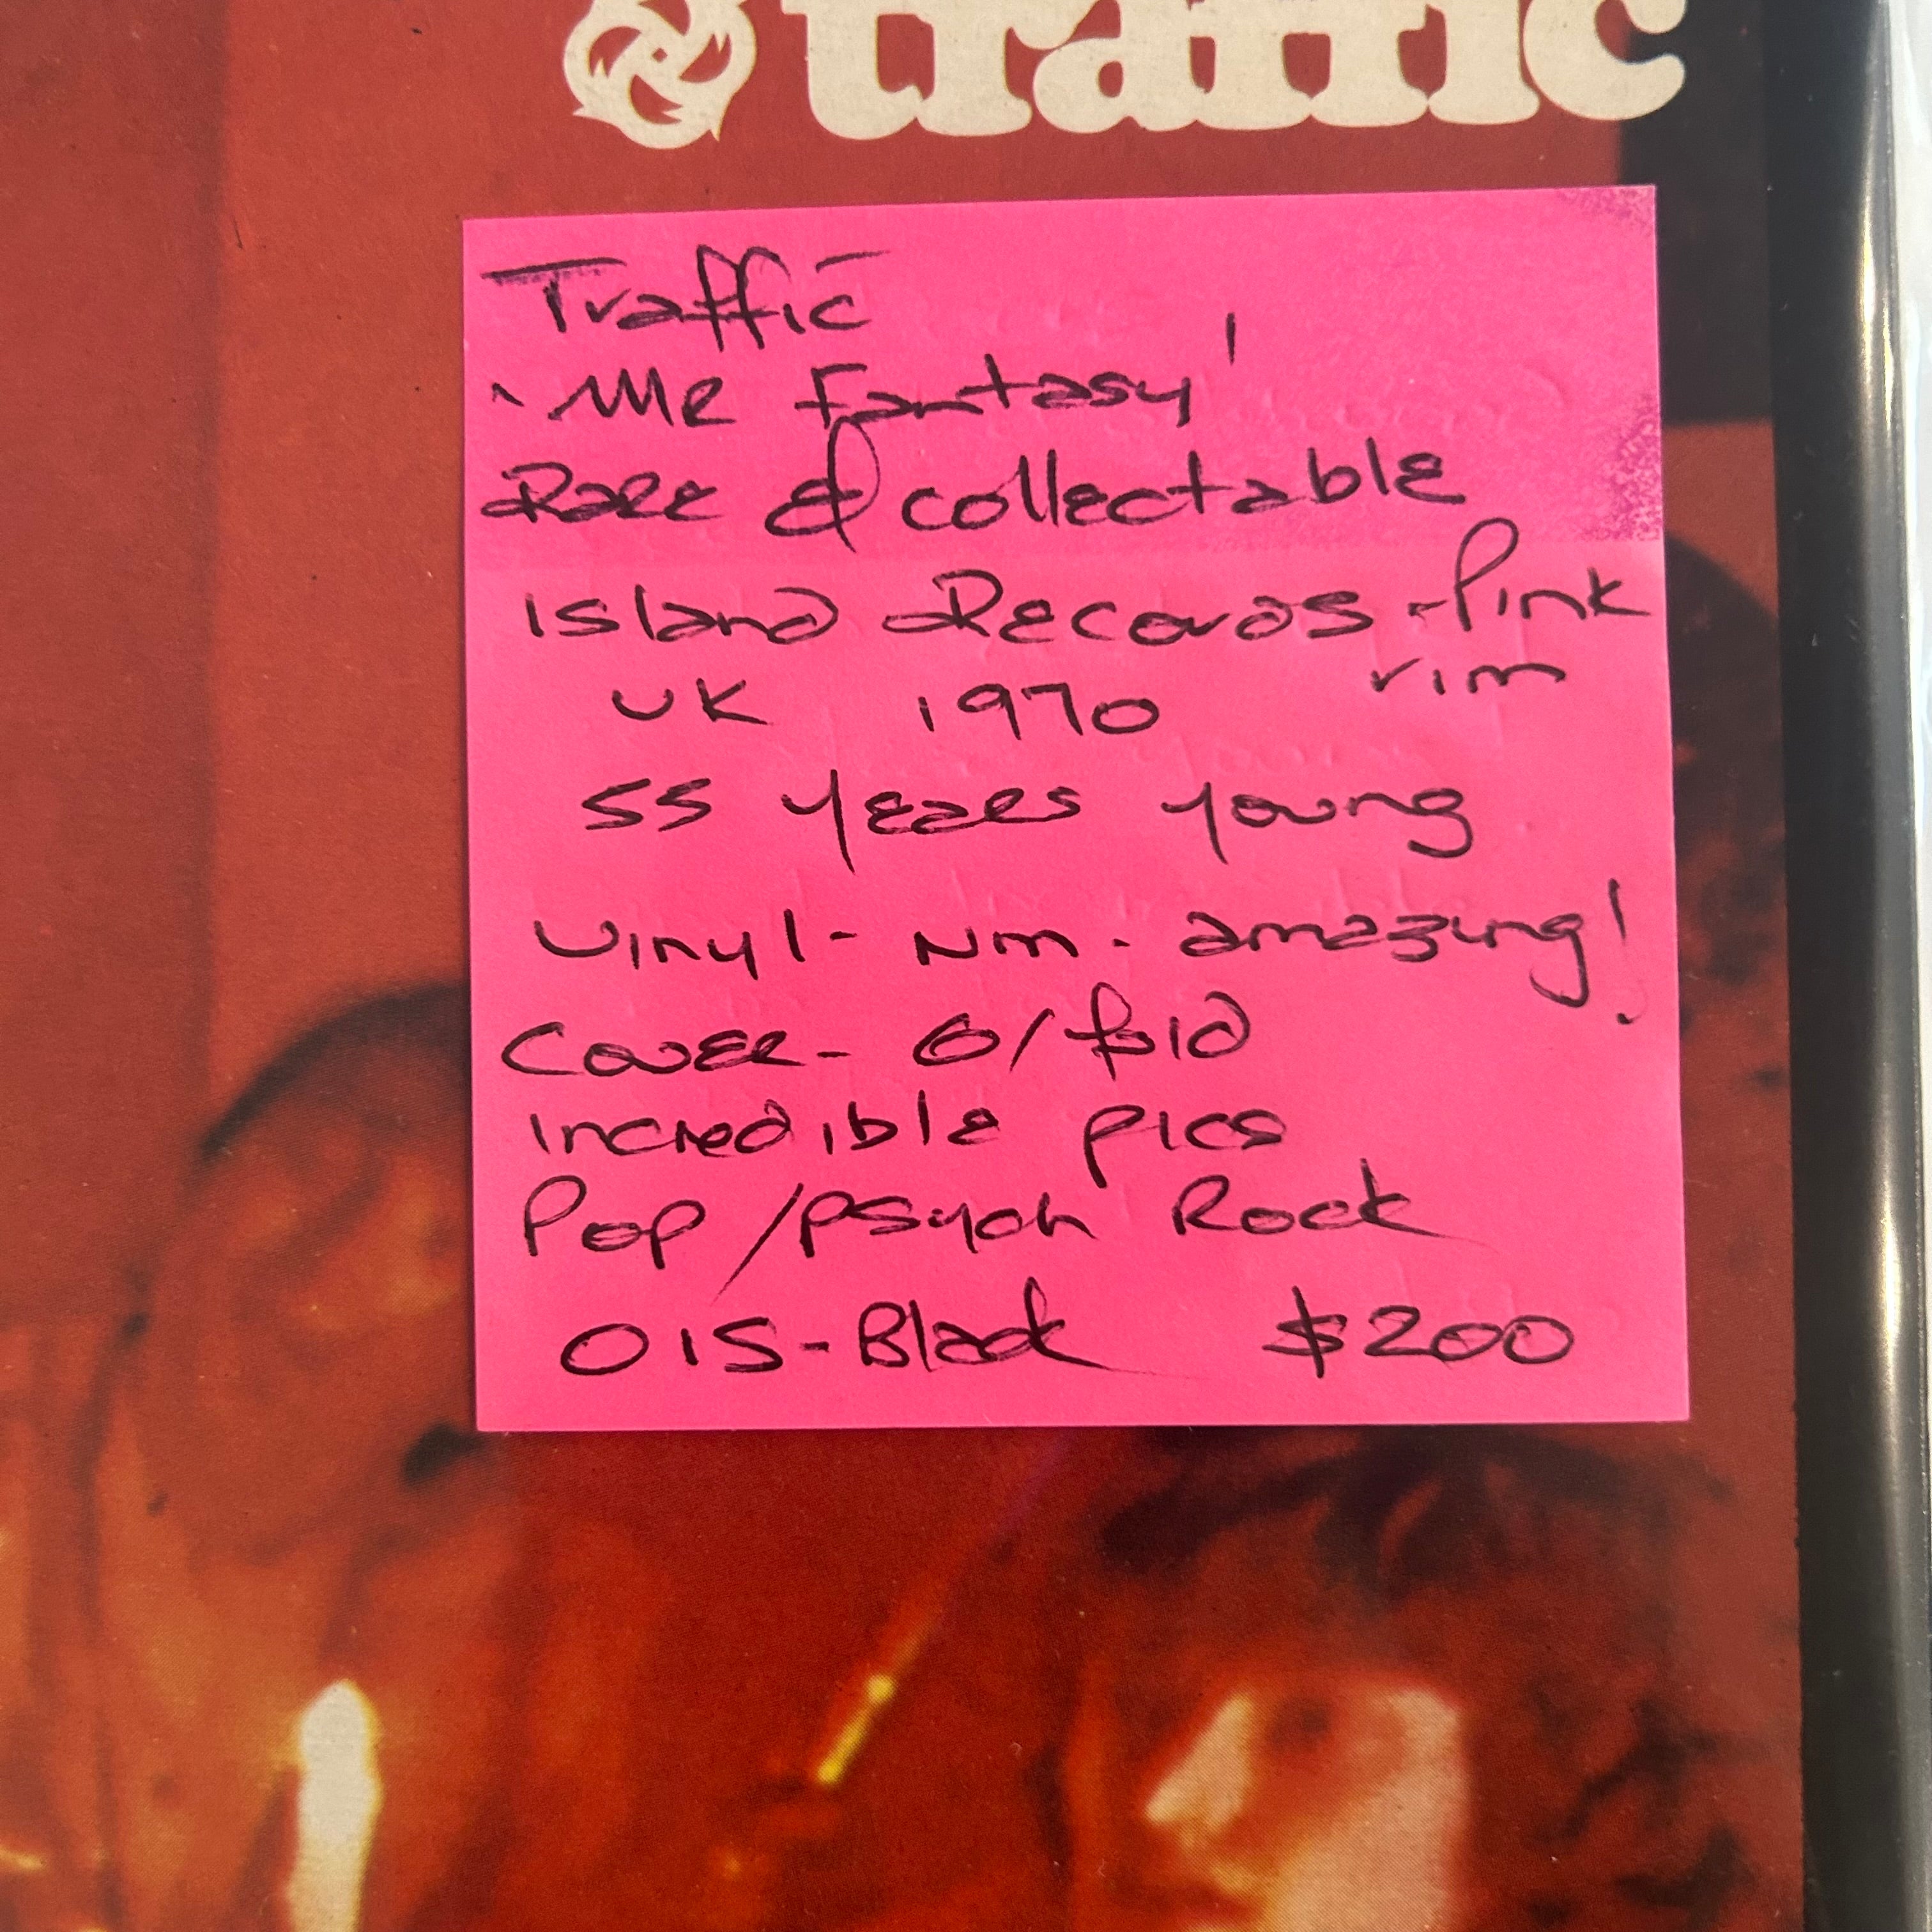 traffic
Traffic
'Mr Fantasy'
Rare & collectable
Island Records - Pink
rim
UK 1970
55 years young
Vinyl - NM - amazing!
Cover - G/fold
incredible pics
Pop/Psych Rock
OIS - Black $200